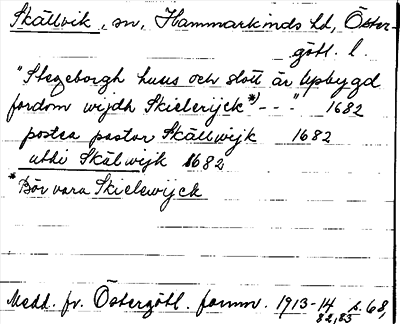 Skällvik, sn, Hammarkinds hd, Öster-
götl. l.
"Stegeborgh huus och slott är Upbygd
fordom wijdh Skielerijck*) - - -" 1682
postea pastor Skällwijk 1682
uthi Skälwijk 1682
*Bör vara Skielewijck
Medd. fr. Östergötl. fornm. 1913-14 s. 68,
82, 83